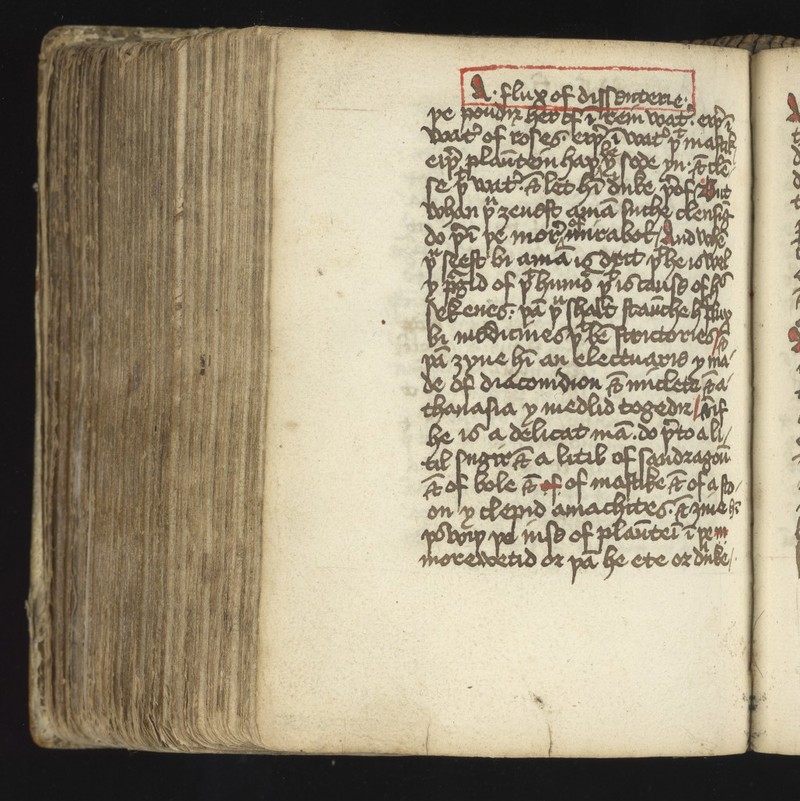 A · flux of dissenterie ·
þe poudir her of ī rein wat̉ · erþ̉ ī
wat̉ of roses · erþ̉ ī wat̉ þͭ mastik
erþ̉ plaūtein haþ be sode yn · & cle
se þͭ wat̉ · & let hī drīke þ̉of But
whan þu zeuest amā suche clensīg
do þ̉ī þe mor̉ mirabol / And whē
þu seest bi amā is drit þͭ he is wel
y pgid of þͭ humo þͭ is cause of his
sekenes · þā þu schalt staūche his flux
bi medicines þͭ bē strictories / &
þā zyue hī an electuarie y ma
de of diacomdion & miclete & a
thanasia y medlid togedir / & if
he is a delicat mā · do þ̉to a li/
til sugir & a litil of sandragoū
& of bole & of of mastike & of a sto/
on y clepid amachites · & zyue hī
þ̉wiþ þe iuse of plaūtei ī þe m
morewetid or þā he ete or drīke /